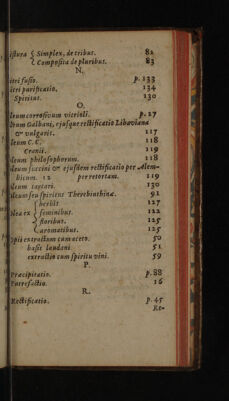 istura { Simplex, de tribus. 82
{ Composita de pluribus. 83
N.
itri fusio. p. 133
itri purificatio. 134
Spiritus. 130
O.
leum corrosivum vitrioli. p. 27
Galbani, ejusque rectificatio Libaviana
& vulgaris. 117
leum C. C. 118
Cranii. 119
leum philosophorum. 118
leum succini & ejusdem rectificatio per Alem-
bicum. 12 per retortam. 119
leum tartari. 130
leum seu spiritus Therebinthinæ. 91
herbis 127
lea ex { seminibus. 122
floribus. 125
aromatibus. 125
pii extractum cum aceto. 50
basis laudani 51
extractio cum spiritu vini. 59
P.
Præcipitatio. p. 88
Putrefactio. 16
R.
Rectificatio. p. 45
Re-